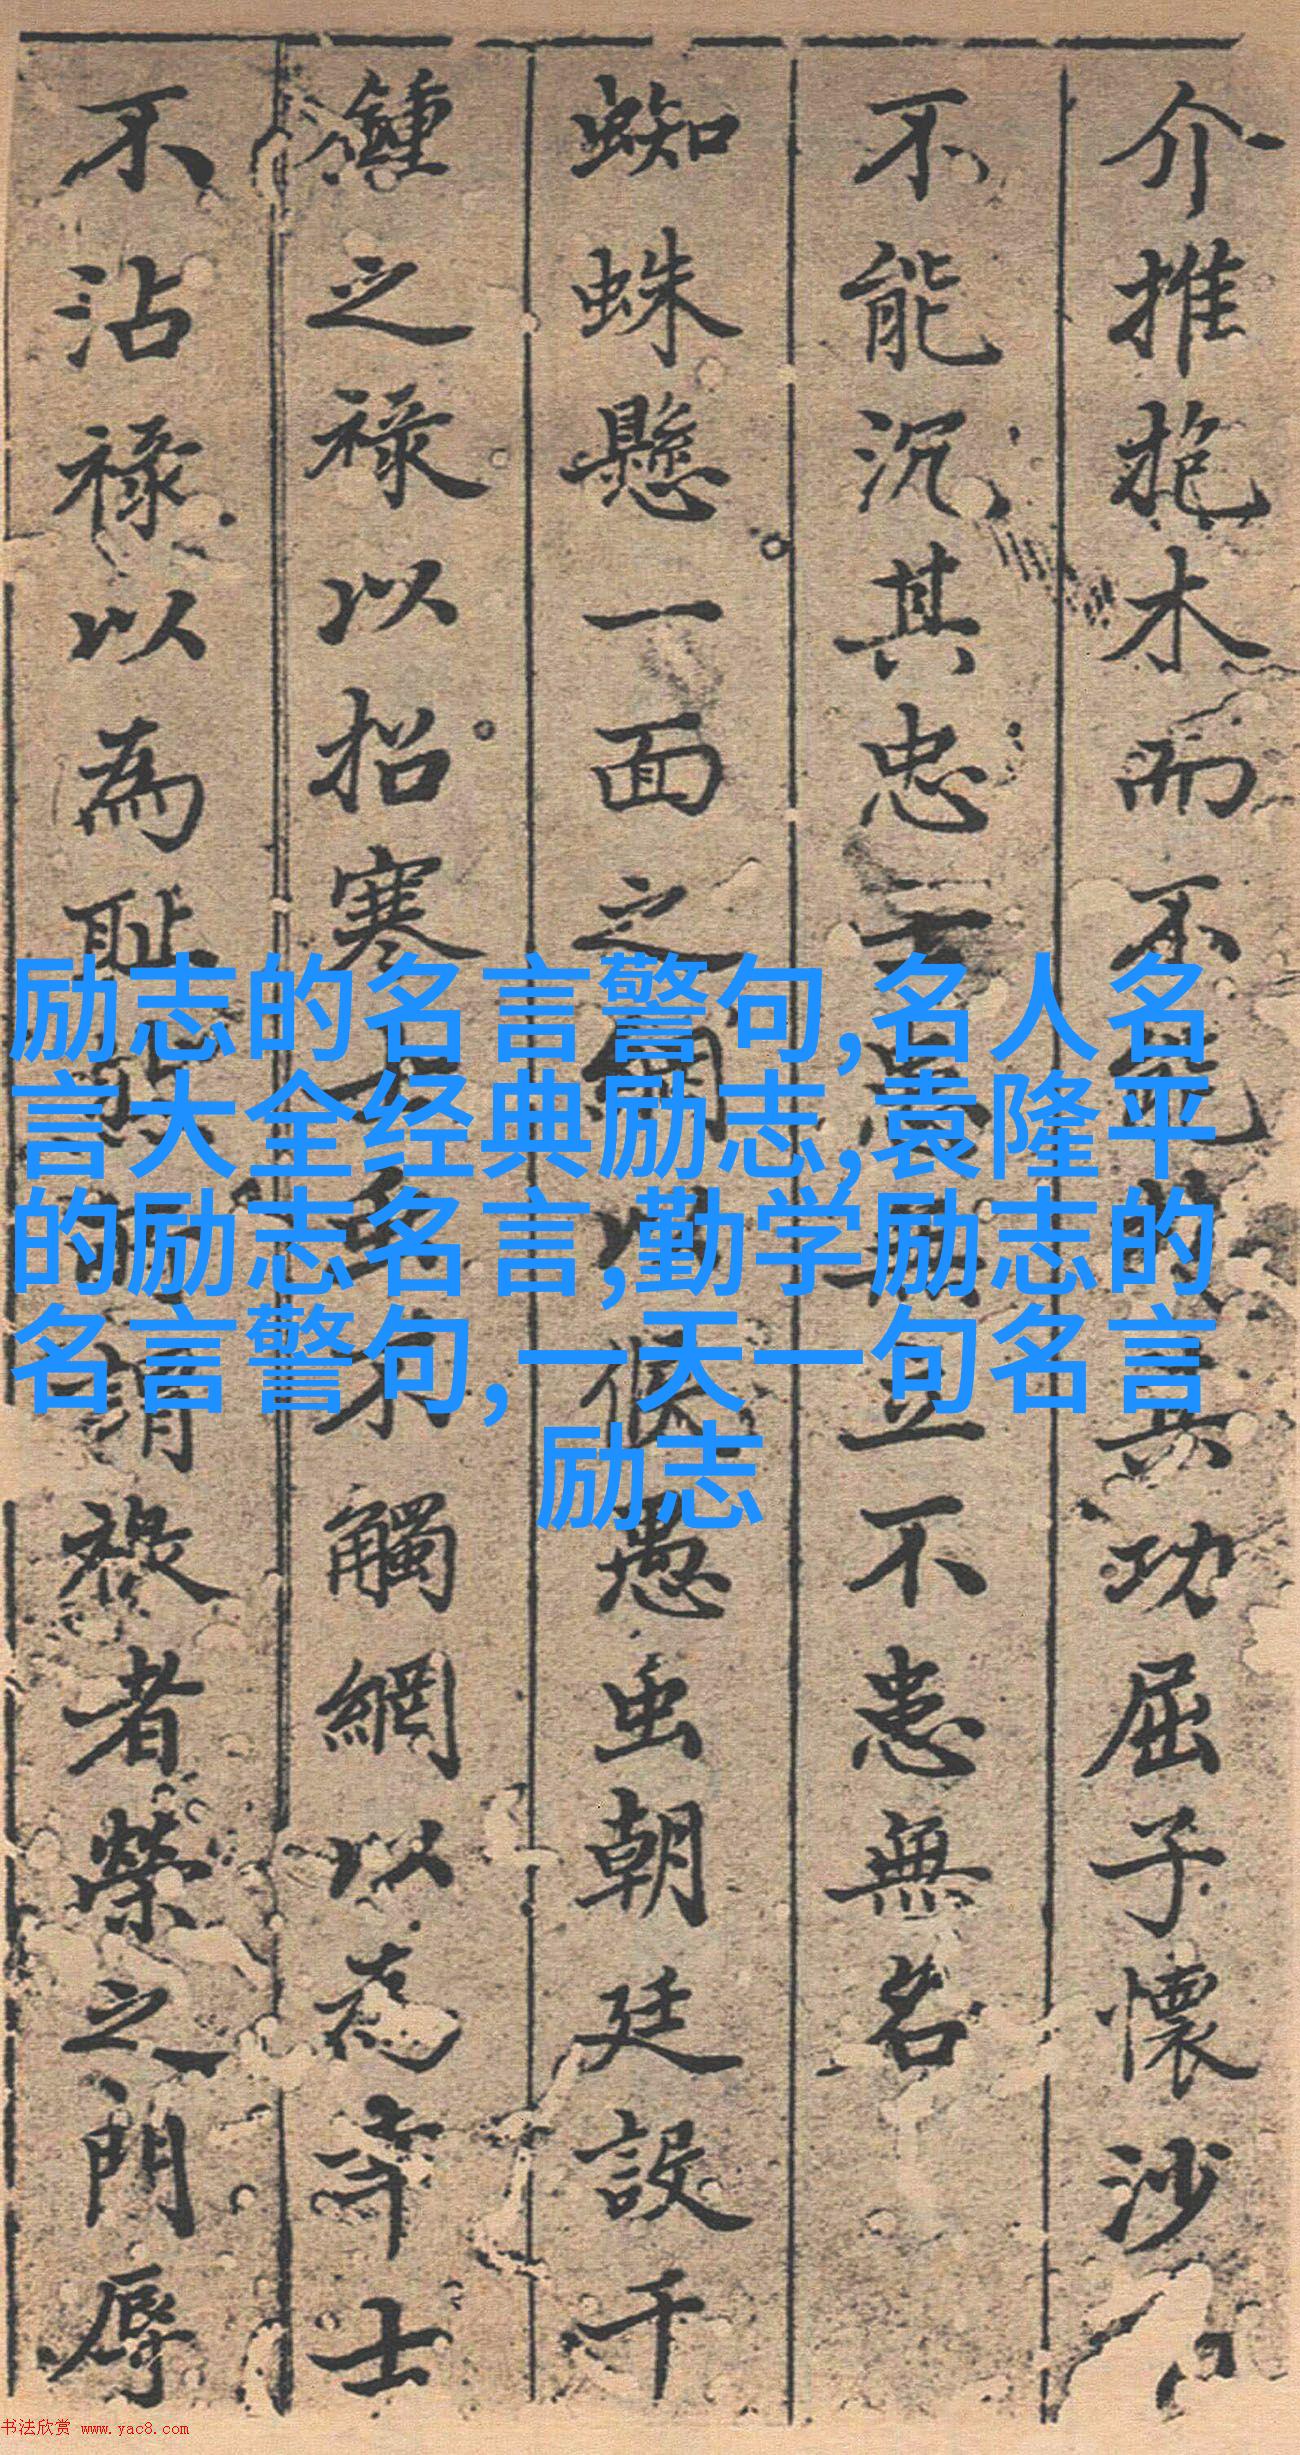 介推抱木而不兵功屈子懷沙
不能沉其忠立不患無名
蜘蛛懸一面之以假愚虫朝廷設千
鍾之祿以招寒不觸網以為士
不沾祿以為恥謂祿者榮之門辱
励志的名言警句,名人名
言大全经典励志,袁隆平
的励志名言,勤学励志的
名言警句,一天一句名言
励志
书法欣赏 www.yac8.com